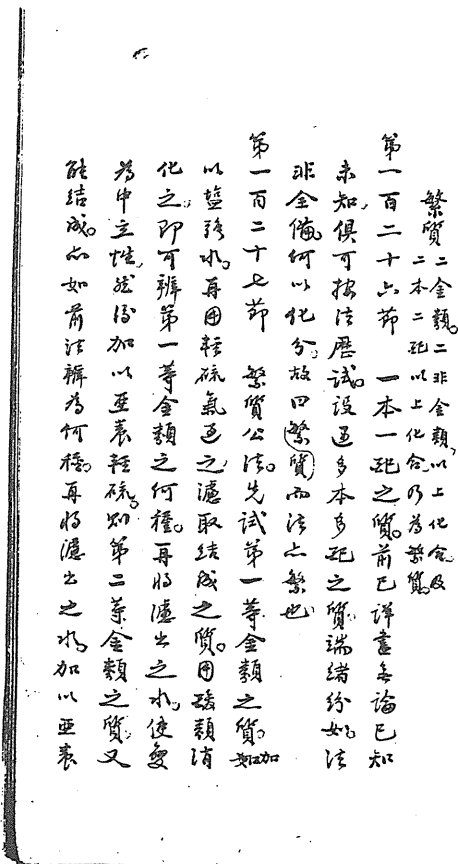 繁質二金類。二非金類。以上化合。及
二本二配以上化合。乃為繁質。
第一百二十六節　一本一配之質。前已詳盡。無論已知
未知。俱可按法歷試。設遇多本多配之質。端緒紛如。法
非全備。何以化分。故曰繁質。而法亦繁也。
第一百二十七節　繁質公法。先試第一等金類之質。如加
以鹽強水。再用輕硫氣過之。濾取結成之質。用酸類消
化之。即可辨第一等金類之何種。再將濾出之水。使變
為中立性。然後加以亜衰輕硫。則第二等金類之質。又
能結成。亦如前法辨為何種。再將濾出之水。加以亜衰